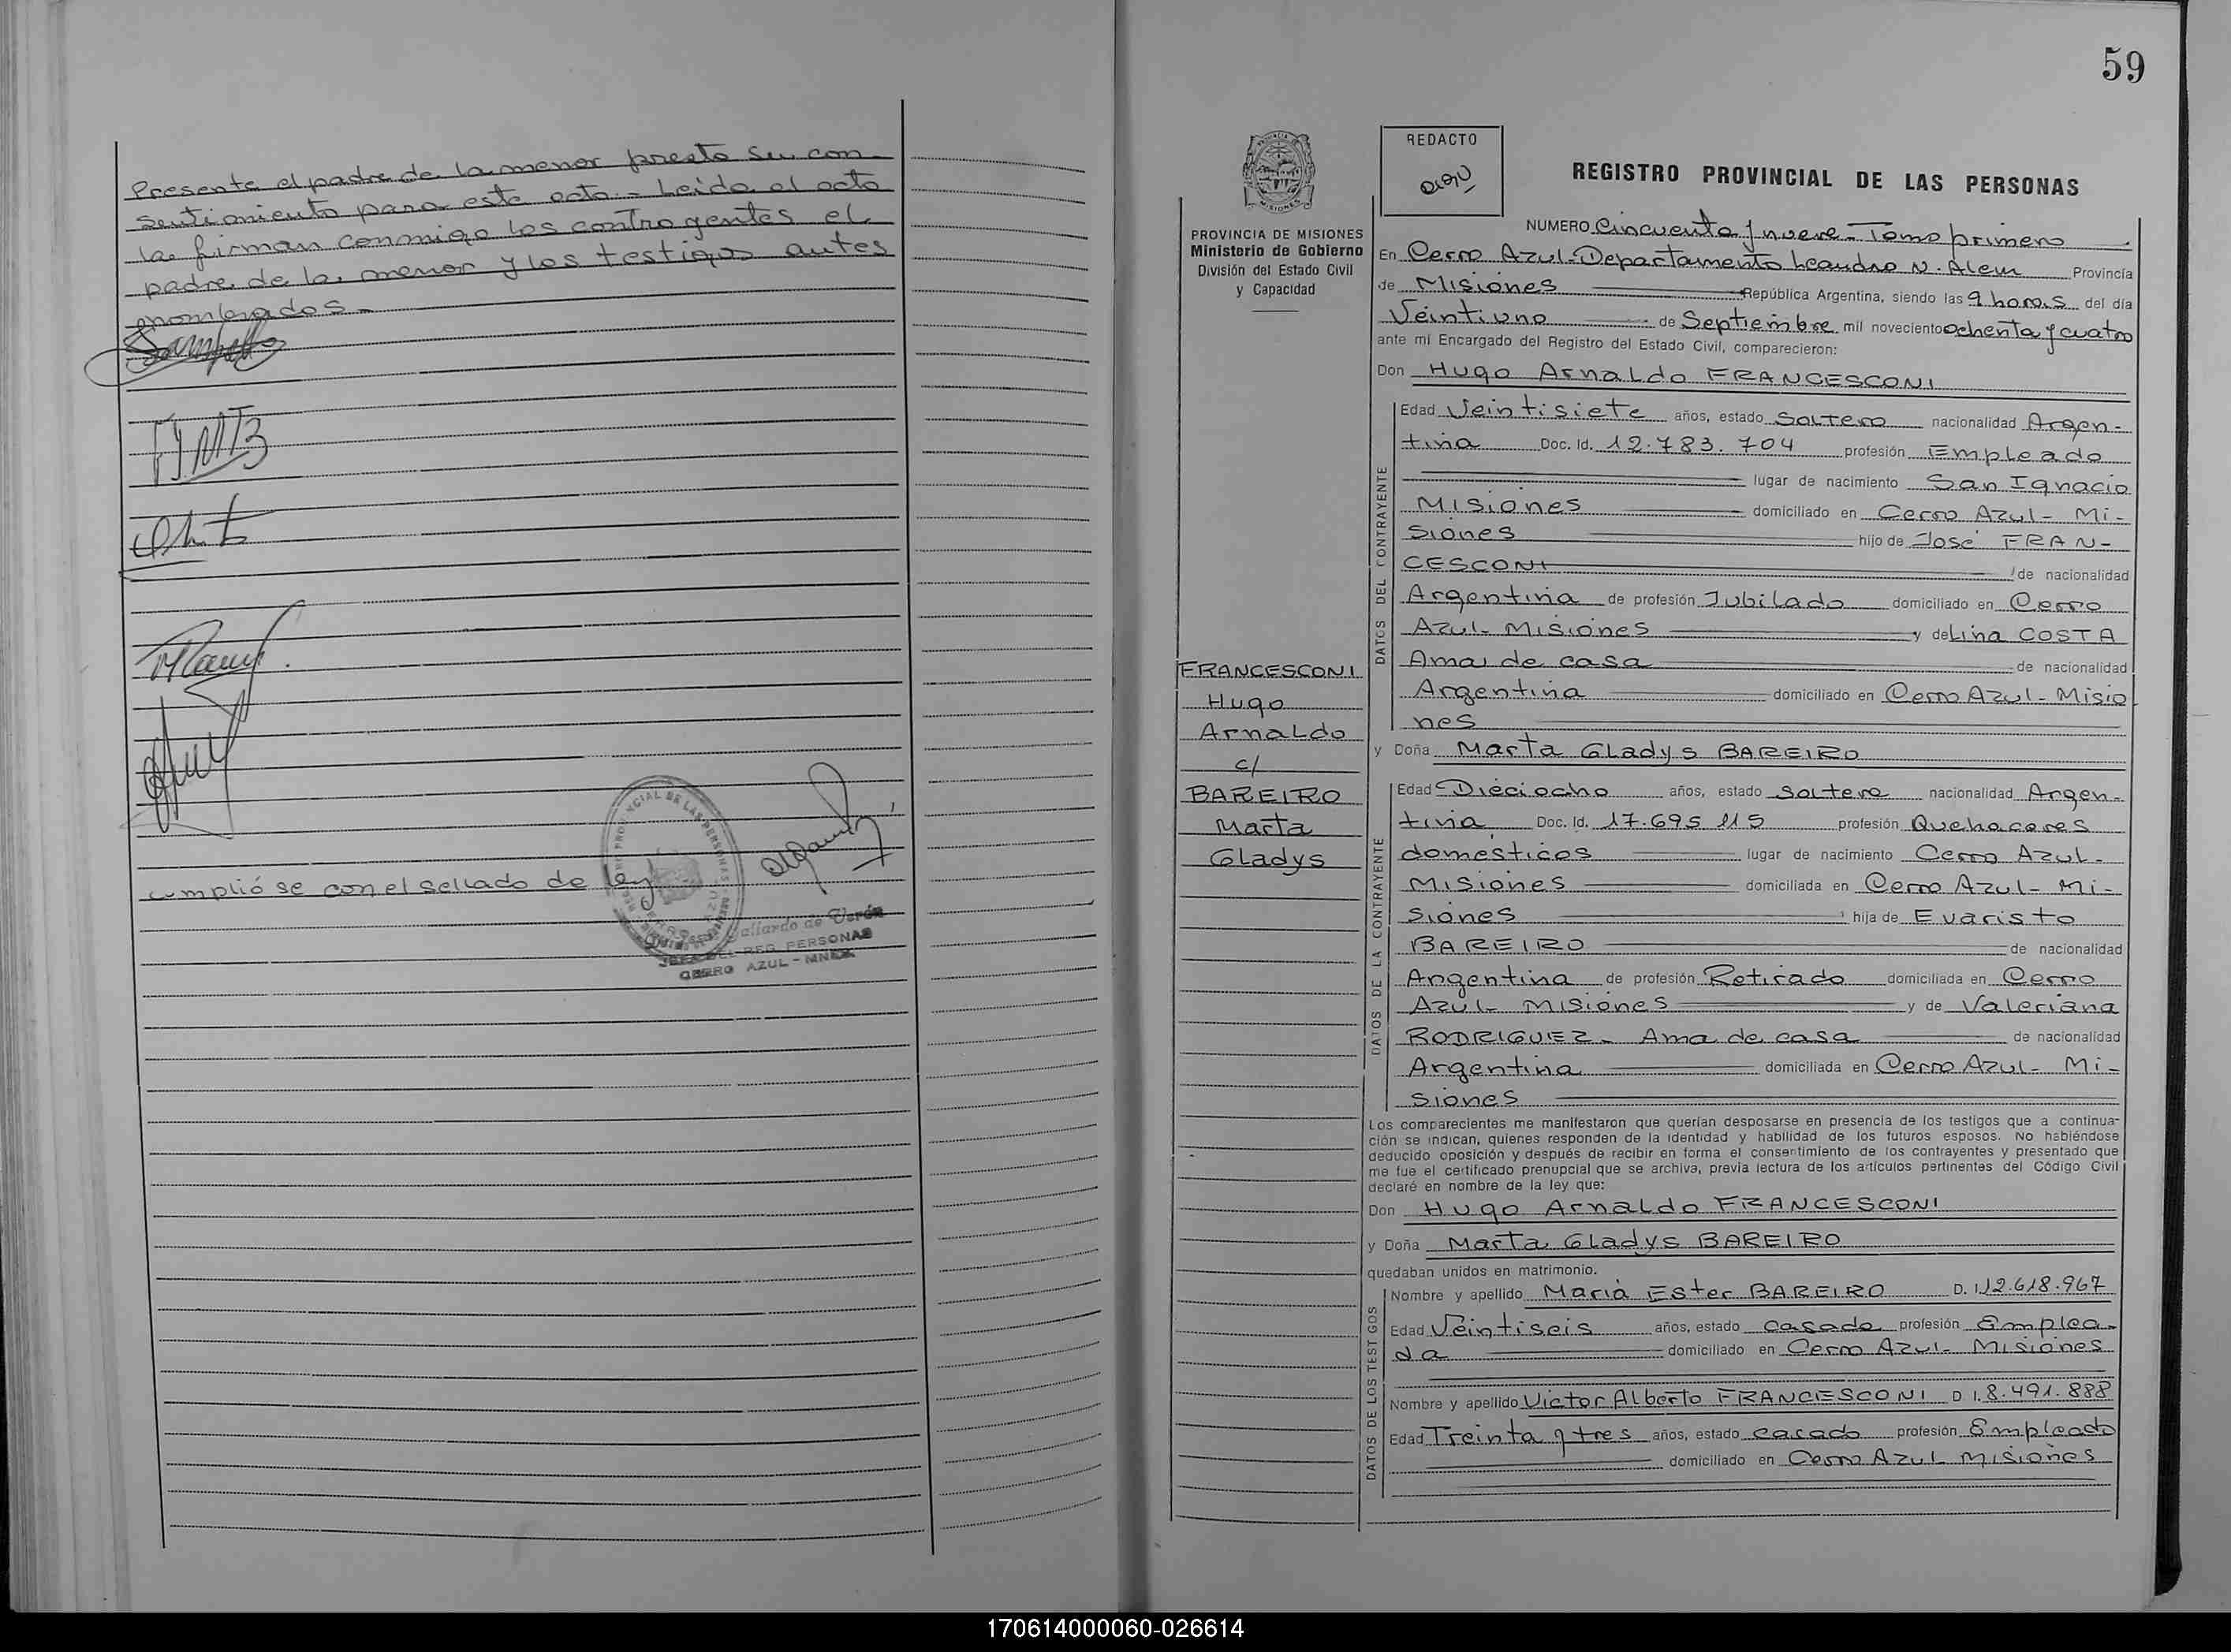 Presente el padre de la menor presta su con-
sentimiento para este acto.- Leida el acta
la firman conmigo los contragentes el
padre de la menor y los testigos antes
nombrados.-
cumplió se con el sellado de ley
Gallardo de Verón
JEFA DEL REG. PERSONAS
CERRO AZUL - MNES.
59
REDACTO
REGISTRO PROVINCIAL DE LAS PERSONAS
PROVINCIA DE MISIONES
Ministerio de Gobierno
División del Estado Civil
y Capacidad
FRANCESCONI
Hugo
Arnaldo
c/
BAREIRO
Marta
Gladys
NUMERO Cincuenta y nueve - Tomo primero
En Cerro Azul - Departamento Leandro N. Alem Provincia
de Misiones República Argentina, siendo las 9 horas del día
Veintiuno de Septiembre mil novecientos ochenta y cuatro
ante mí Encargado del Registro del Estado Civil, comparecieron:
Don Hugo Arnaldo FRANCESCONI
DATOS DEL CONTRAYENTE
Edad Veintisiete años, estado Soltero nacionalidad Argen-
tina Doc. Id. 12.783.704 profesión Empleado
lugar de nacimiento San Ignacio
Misiones domiciliado en Cerro Azul - Mi-
siones hijo de José FRAN-
CESCONI de nacionalidad
Argentina de profesión Jubilado domiciliado en Cerro
Azul - Misiones y de Lina COSTA
Ama de casa de nacionalidad
Argentina domiciliado en Cerro Azul - Misio
nes
y Doña Marta Gladys BAREIRO
DATOS DE LA CONTRAYENTE
Edad Dieciocho años, estado Soltera nacionalidad Argen-
tina Doc. Id. 17.695 115 profesión Quehaceres
domésticos lugar de nacimiento Cerro Azul -
Misiones domiciliada en Cerro Azul - Mi-
siones hija de Evaristo
BAREIRO de nacionalidad
Argentina de profesión Retirado domiciliada en Cerro
Azul - Misiones y de Valeriana
RODRIGUEZ - Ama de casa de nacionalidad
Argentina domiciliada en Cerro Azul - Mi-
siones
Los comparecientes me manifestaron que querían desposarse en presencia de los testigos que a continua-
ción se indican, quienes responden de la identidad y habilidad de los futuros esposos. No habiéndose
deducido oposición y después de recibir en forma el consentimiento de los contrayentes y presentado que
me fue el certificado prenupcial que se archiva, previa lectura de los artículos pertinentes del Código Civil
declaré en nombre de la ley que:
Don Hugo Arnaldo FRANCESCONI
y Doña Marta Gladys BAREIRO
quedaban unidos en matrimonio.
DATOS DE LOS TESTIGOS
Nombre y apellido María Ester BAREIRO D. I. 12.618.967
Edad Veintiseis años, estado casada profesión Emplea-
da domiciliado en Cerro Azul - Misiones
Nombre y apellido Victor Alberto FRANCESCONI D I. 8.491.888
Edad Treinta y tres años, estado casado profesión Empleado
domiciliado en Cerro Azul Misiones
170614000060-026614